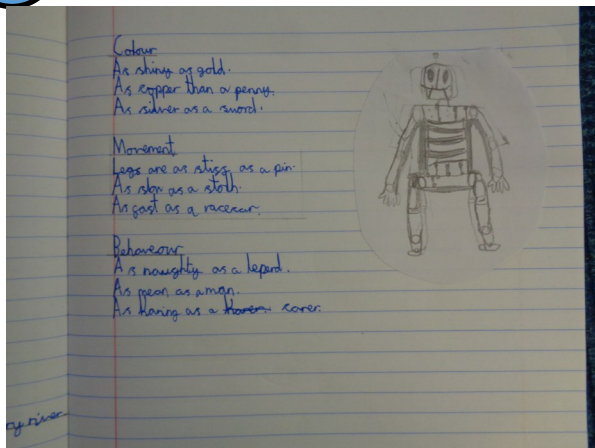 Colour
As shiny as gold.
As copper than a penny.
As silver as a sword.
Movement
Legs are as stiff as a pin.
As slow as a stoth.
As fast as a racecar.
Behaveour
As naughty as a leperd.
As mean as a man.
As karing as a carer.
river